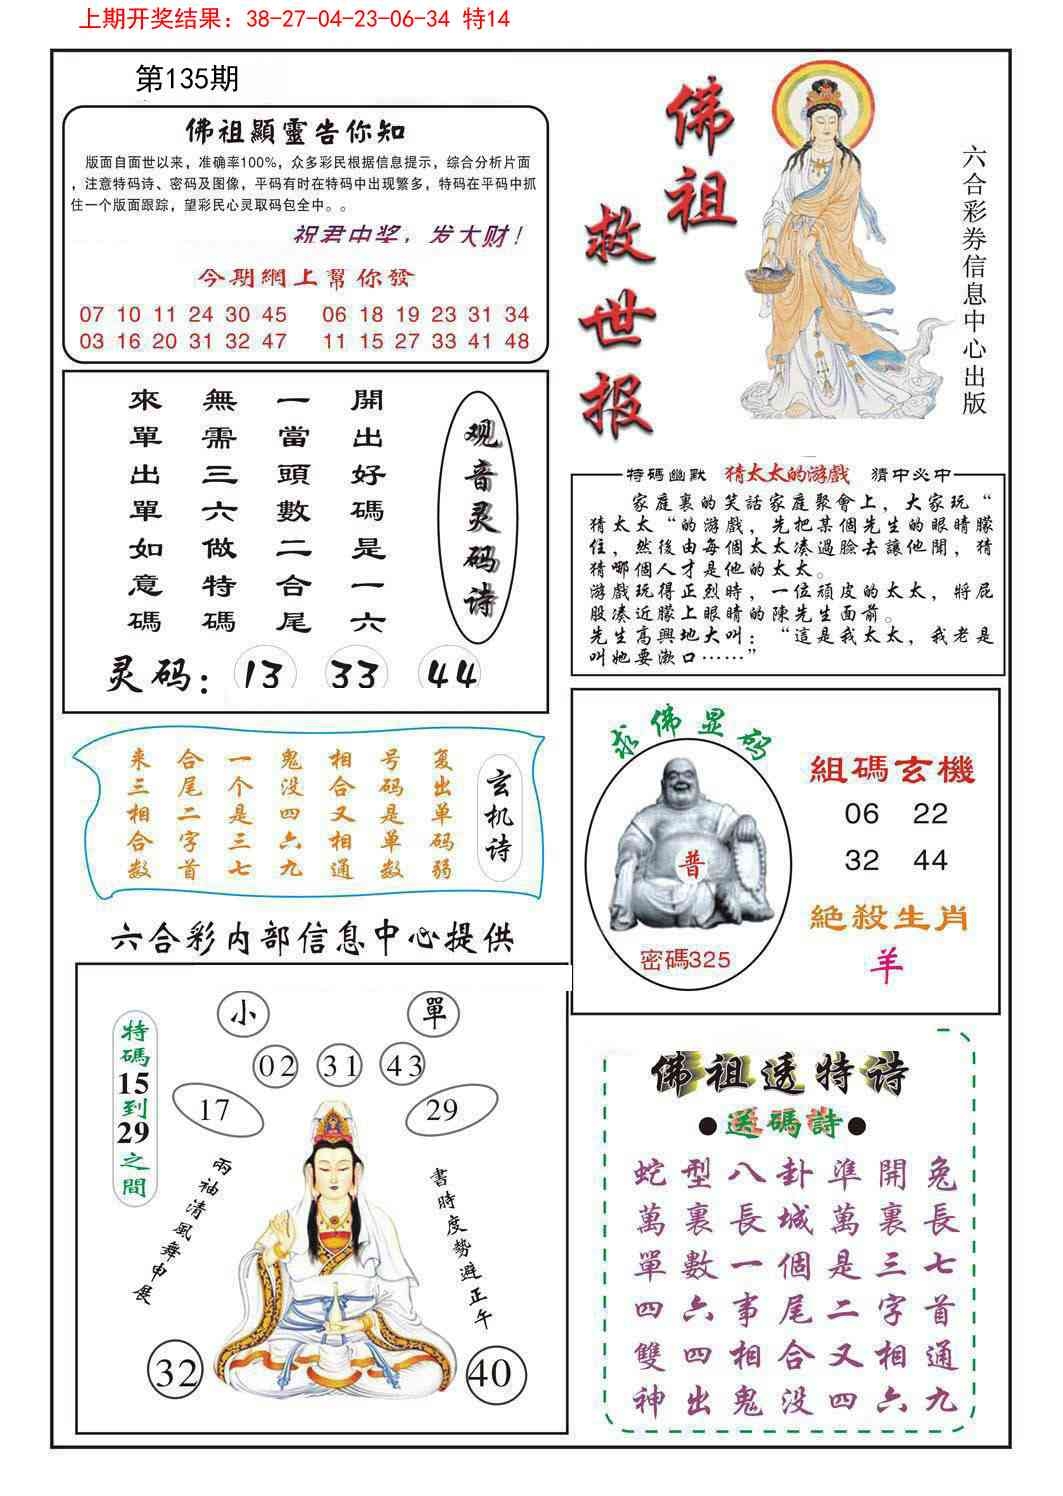 上期开奖结果：38-27-04-23-06-34 特14
第135期
佛祖顯靈告你知
版面自面世以来，准确率100%，众多彩民根据信息提示，综合分析片面
，注意特码诗、密码及图像，平码有时在特码中出现繁多，特码在平码中抓
住一个版面跟踪，望彩民心灵取码包全中。。
祝君中奖，发大财！
今期網上幫你發
07 10 11 24 30 45 06 18 19 23 31 34
03 16 20 31 32 47 11 15 27 33 41 48
佛祖
救世报
六合彩券信息中心出版
观音灵码诗
開出好碼是一六
一當頭數二合尾
無需三六做特碼
來單出單如意碼
灵码：13 33 44
特碼幽默 猜太太的游戲 猜中必中
家庭裏的笑話家庭聚會上，大家玩“
猜太太“的游戲，先把某個先生的眼睛朦
住，然後由每個太太凑過臉去讓他聞，猜
猜哪個人才是他的太太。
游戲玩得正烈時，一位頑皮的太太，將屁
股凑近朦上眼睛的陳先生面前。
先生高興地大叫：“這是我太太，我老是
叫她要漱口……”
玄机诗
复出单码弱
号码是单数
相合又相通
鬼没四六九
一个是三七
合尾二字首
来三相合数
求佛显码
普
密碼325
組碼玄機
06 22
32 44
絕殺生肖
羊
六合彩内部信息中心提供
小 單
02 31 43
17 29
特碼15到29之間
兩袖清風舞申展
書時度勢避正午
32 40
佛祖透特诗
●送碼詩●
蛇型八卦準開兔
萬裏長城萬裏長
單數一個是三七
四六事尾二字首
雙四相合又相通
神出鬼没四六九